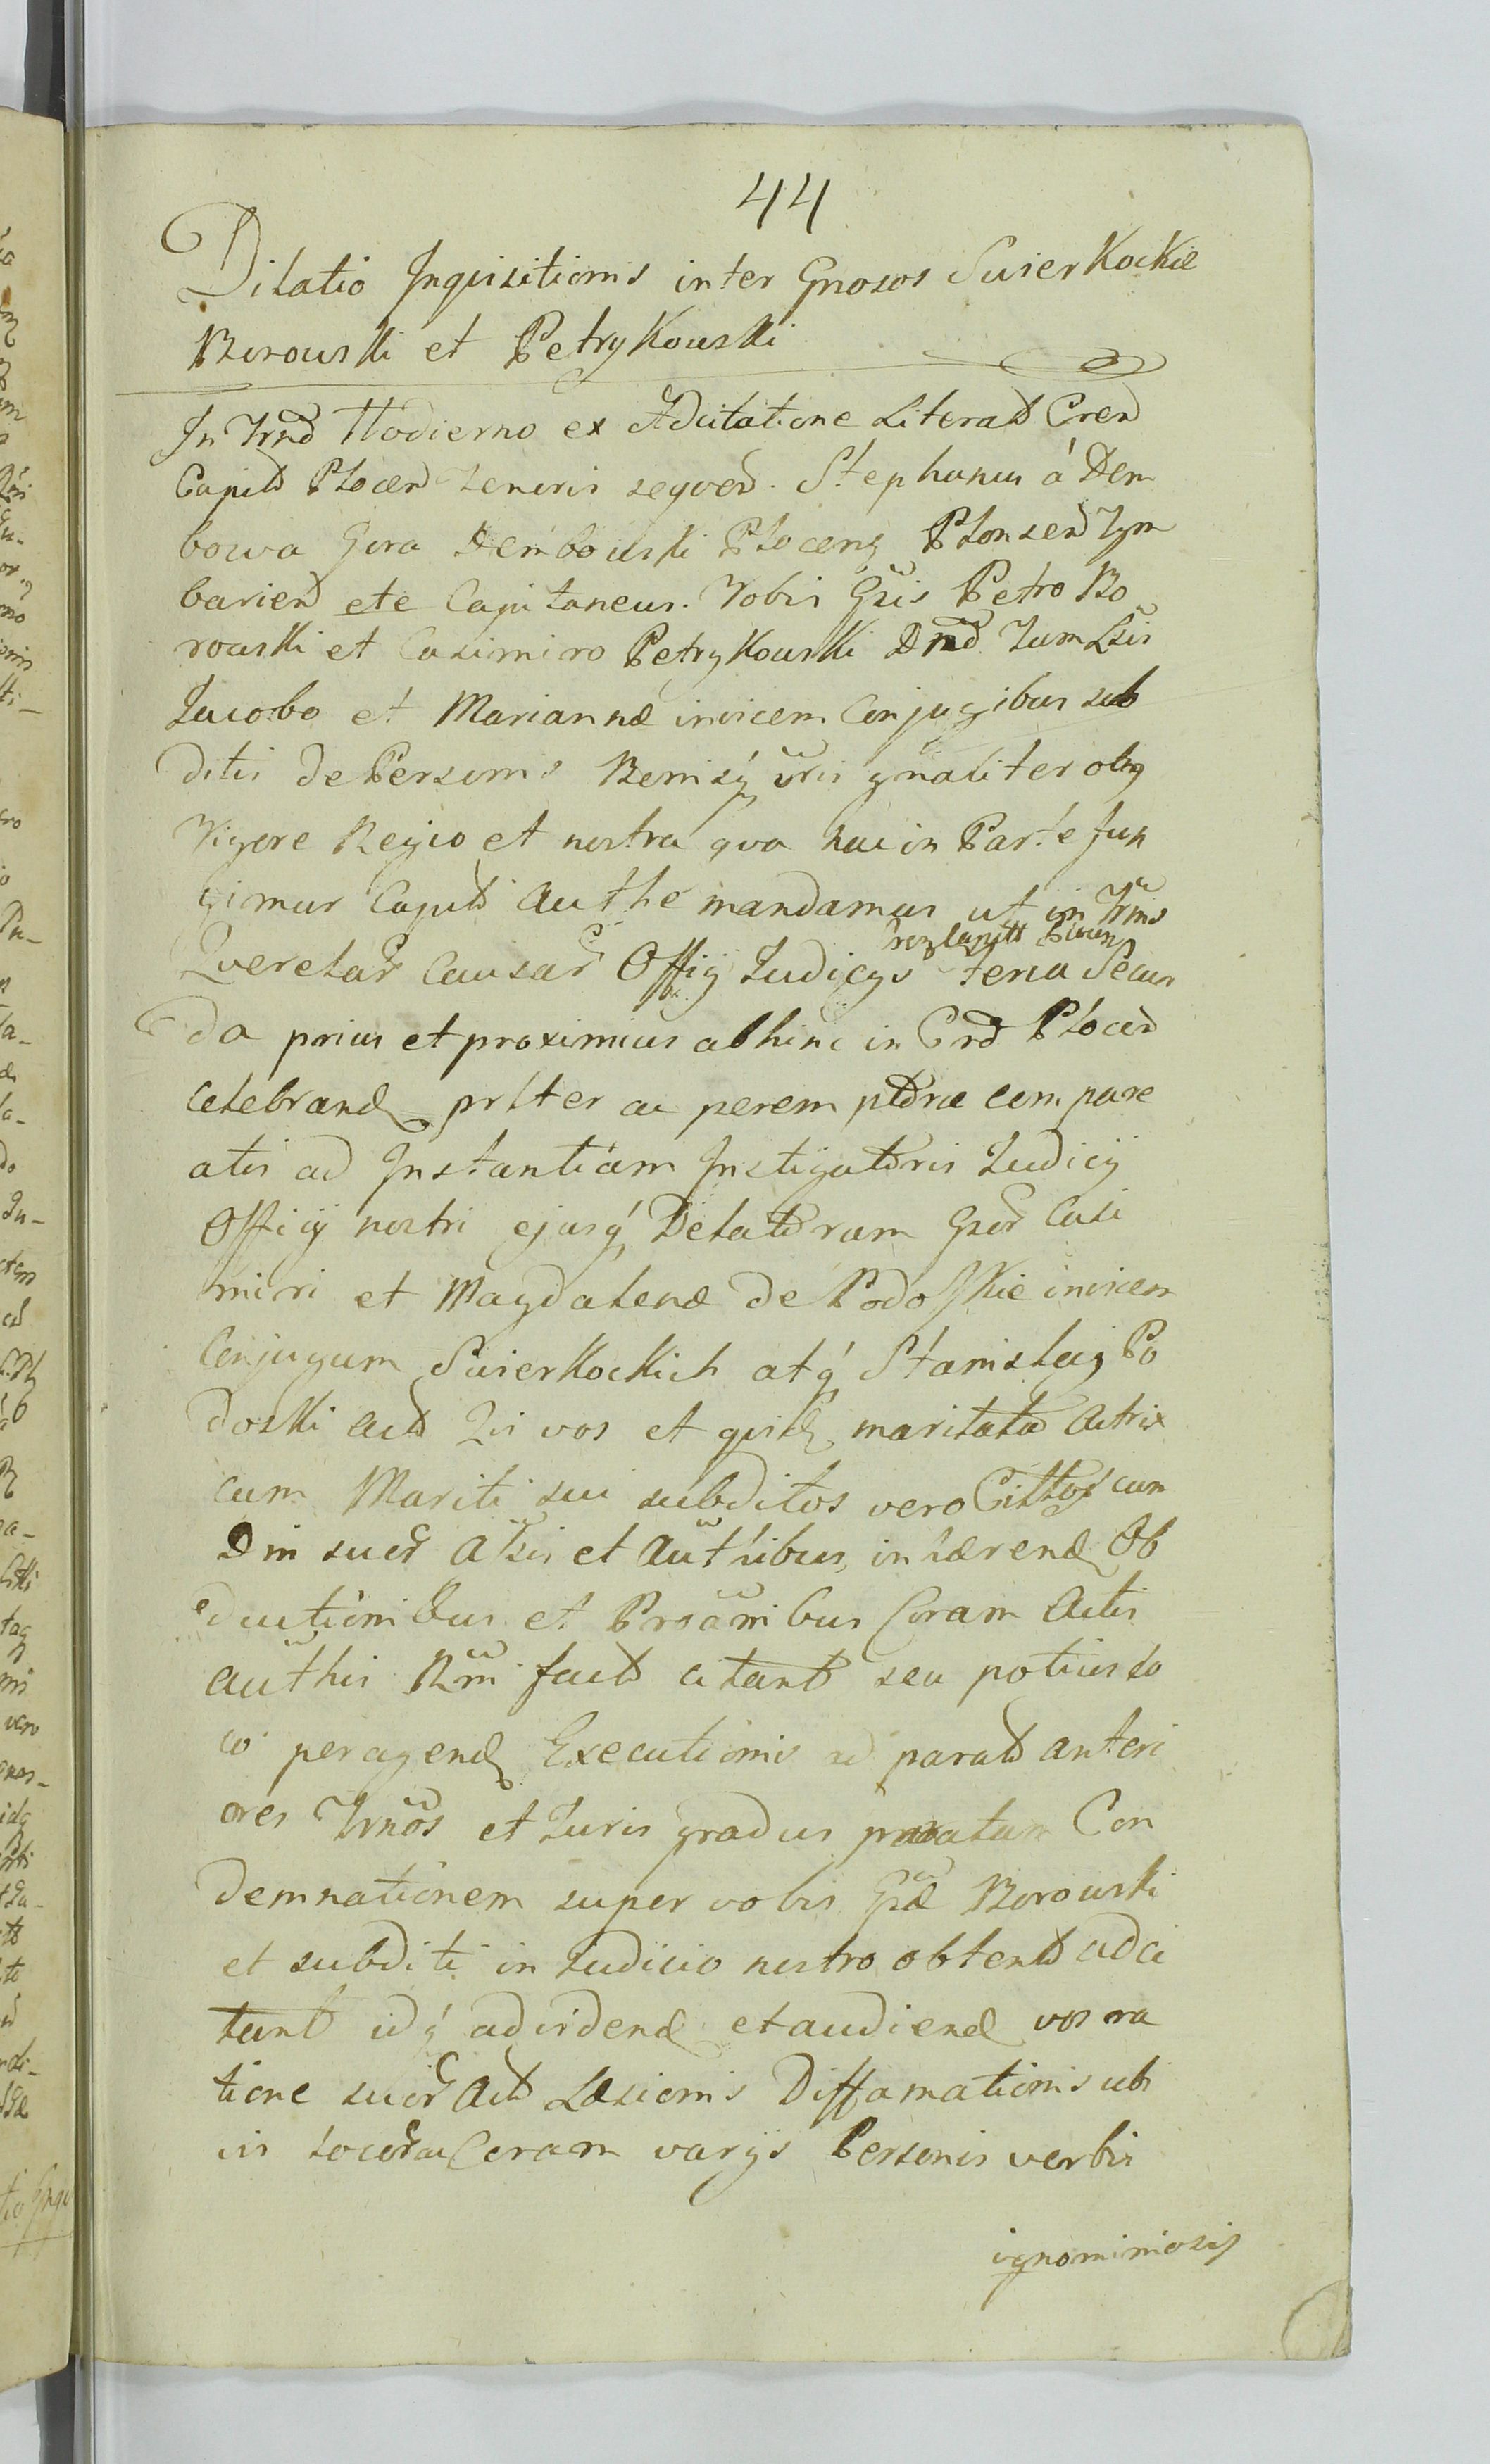 44
Dilatio Inquisitionis inter Gnosos Swierkockie
Borowski et Petrykowski
In Trnõ Hodierno ex Adcitatione Literarũ Cren
Capitũ Plocen tenoris seqven. Stephanus á Dem
bowa Gora Dembowski Plocens Plonsen Zym
barien etc Capitaneus. Vobis Gsis Petro Bo
rowski et Casimiro Petrykowski Dnõ Tum Lsis
Jacobo et Mariannæ invicem Conjugibus sub
ditis de Personis Bonisq́ vris gnaliter oĩbg
Vigore Regio et nostra qva hac in Parte fun
gimur Capitũ Authe mandamus ut in Trmis
Qverelar Causar Offĳ Judicĳs feria Secun
da prius et proximius abhinc in Crõ Plocen
celebrand prlter ac peremptorie compare
atis ad Instantiam Instigatoris Judicĳ
Officĳ nostri ejusq́ Delatorum Gsor Casi
miri et Magdalenæ de Podoskie invicem
Conjugum Swierkockich atq́ Stanislai Po
doski Act Qui vos et qvid maritata Actrix
cum Mariti sui subditos vero Cittos cum
Din suor Assis et Authibus, inhærend Ob
ductionibus et Prõanibus Coram Actis
authis Rm fact citant seu potius lo
co peragend Executionis ad parat anteri
ores Trnos et Juris gradus paratam Con
demnationem super vobis Gsæ Borowski
et subditi in Judicio nostro obtent adci
tant idq́ ad vidend et audiend vos ra
tione suor Act Læsionis Diffamationis ubi
vis locor ac Coram varĳs Personis verbis
ignominiosis